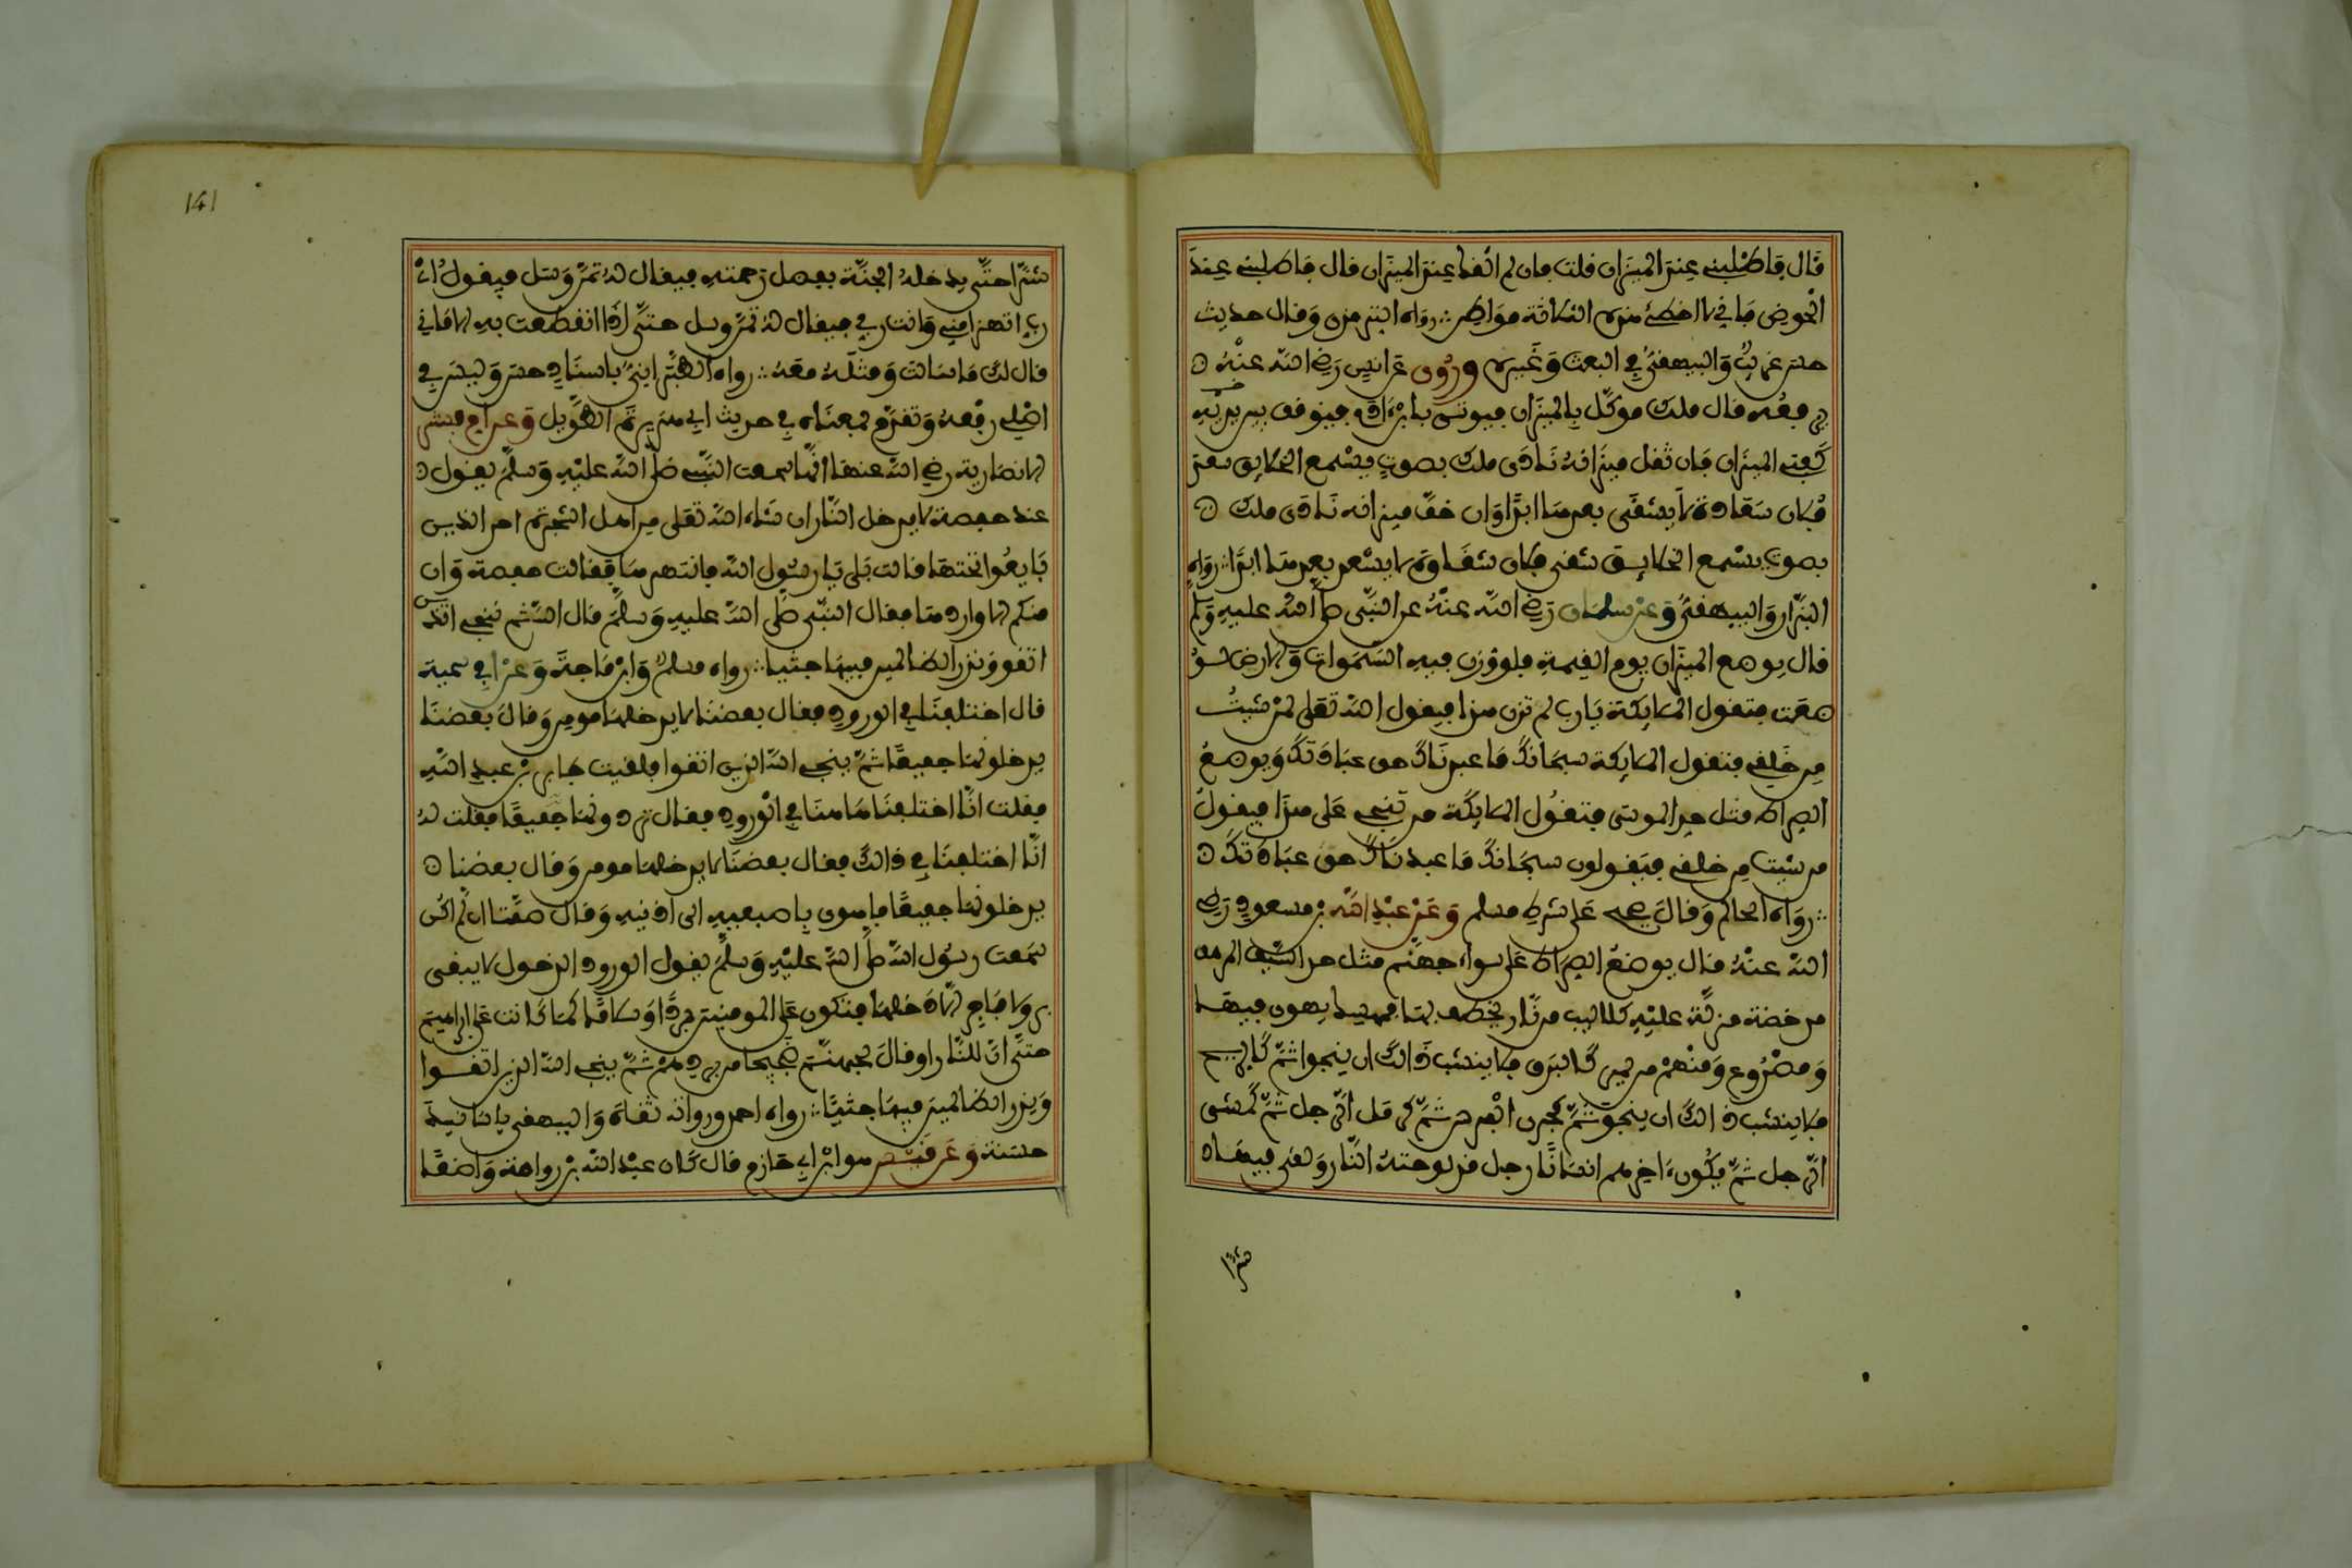 قَال فَاطْلبني عِندَ الميزان قلت فان لم القك عند الميزان قال فاطلبني عند
الحوض فاني لا اخطئ هذه الثلاثة مواطن رواه الترمذي وقال حديث
حسن غريبٌ والبيهقيُّ في البعث وَغيره وروي عن انس رَضي الله عنْهُ
يرفعُه قال ملك موكّل بالميزان فيوتى بابن ءادم فيوقف بين
كفتي الميزان فان ثقل ميزانه نادى ملك بصوتٍ يسْمع الخلايق سعد
فلان سعادة لا يشقَى بعدها ابدًا وان خفّ ميزانه نادى ملك
بصوت يسْمع الخلايق شقي فلان شقاوة لا يسْعد بعدها ابدًا رواه
البزّار والبيهقيُّ وعن سلمان رَضي الله عنْهُ عن النبّي صلى الله عليه وسلم
قال يوضع الميزان يوم القيمة فلو وُزن فيه السّموات والارض لو
ضعت فتقول الملايكة يارب لم تزن هذا فيقول الله تعلى لمن شيتُ
من خلقي فتقول الملايكة سبحانك ما عبدناك حق عبادتك ويوضعُ
الصراط مثل حد الموسى فتقُول الملايكة من تنجي عَلى هذا فيقول
من شيت من خلقي فيقولون سبحانك ما عبدناك حق عبادتك
رواه الحاكم وقالَ صحيح على شرط مسلم وَعَن عبْدِ الله بن مسعود رَضي
الله عنْهُ قال يوضعُ الصراط عَلى سواء جهنّم مثل حد السّيف المرهف
مدحضة مزلّة عليْهِ كلاليب من نّار يخطف بها فممسك يهوي فيها
وَمصْرُوع وَمنْهُمْ من يمر كالبرق فلا ينشب ذالك ان ينجوا ثمّ كالريح
فلا ينشب ذالك ان ينجو ثمَّ كجري الفرس ثمَّ كرمل الرّجل ثمّ كمشي
الرّجل ثمّ يكُون ءاخرهم انسانًا رجل قد لوحتهُ النّار ولقي فيها
شرًّا
شرًّا حتّى يدخله الجنّة بفضل رحمته فيقال لهُ تمنَّ وسَل فيقولُ اي
ربِّ اتهزا مني وانت ربي فيقال لهُ تمنَّ وسل حتّى إذا انقطعت به الاماني
قال لك ما سالت ومثله معَهُ رواه الطبرانيُّ باسناد حسن وليس في
اصْلي رفْعهُ وتقدّم بمعناه في حديث ابي هريرة الطّويل وَعن ام مبشر
الانصارية رضي الله عنها انّها سمعت النّبي صلى الله عليْهِ وَسلمَّ يقول
عند حفصة لا يدخل النّار ان شاء الله تعلى من اهل الشجرة احد الذين
بَايعُوا تحتها قالت بَلى يا رسُول الله فانتهرها فقالت حفصة وَان
منكم الا واردها فقال النبّي صَلى الله عليهِ وَسلمَّ قال الله ثم ننجي الذين
اتقوا ونذر الظالمين فيها جثيا رواه مسلم وابْن ماجَة وَعَنْ ابي سمية
قال اختلفنَا في الورود فقال بعضنَا لا يدخلها مومن وَقالَ بعضنَا
يدخلونها جميعًا ثمّ ينجي الله الذين اتقوا فلقيت جابر بْن عبد الله
فقلت انّا اختلفنَا هاهنا في الْورود فقال تردونها جميعًا فقلت لهُ
انّا اختلفنَا في ذالك فقال بعضنَا لا يدخلها مومن وَقال بعضنا
يدخلونها جميعًا فاهوى باصبعيه الى اذنيه وَقال صمّتا ان لم اكن
سمَعت رسُول الله صلى الله عليْهِ وَسلمَّ يقول الورود الدخول لا يبقى
بر ولا فاجر الا دَخلها فتكون عَلى المومنين بردًا وسَلامًا كما كانت عَلى ابراهيم
حتّى انّ للنّار او قالَ لجهنّم ضجيجا من بردهم ثمّ ينجي الله الذين اتقوا
وَيذر الظالمين فيها جثيًّا رواه احمد ورواته ثقاة والبيهقي باسانيد
حسنة وَعَن قيس هو ابْن ابي حازم قال كان عبْد الله بْن رواحة واضعًا
141